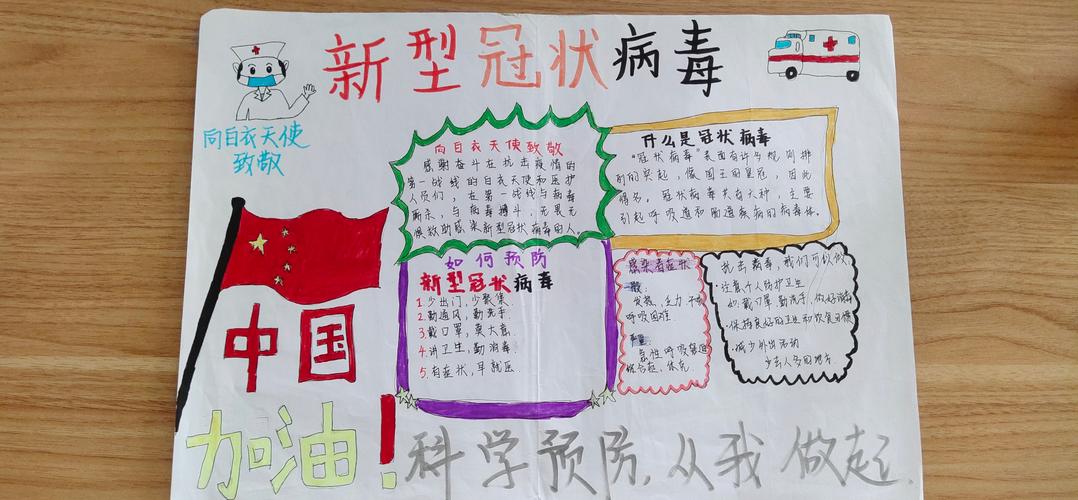 新型冠状病毒
向白衣天使
致敬
向白衣天使致敬
感谢奋斗在抗击疫情的
第一战线的白衣天使和医护
人员们，在第一战线与病毒
厮杀，与病毒搏斗，无畏无
惧救助感染新型冠状病毒的人。
什么是冠状病毒
"冠状病毒"表面有许多规则排
列的突起，像国王的皇冠，因此
得名。冠状病毒共有六种，主要
引起呼吸道和肠道疾病的病毒体。
如何预防
新型冠状病毒
1.少出门，少聚集.
2.勤通风，勤洗手.
3.戴口罩，莫大意.
4.讲卫生，勤消毒.
5.有症状，早就医.
感染者症状
一般:
发热，乏力，干咳
呼吸困难.
严重:
急性呼吸窘迫
综合征，休克
抗击病毒，我们可以做
·注意个人防护卫生
如:戴口罩 勤洗手，做好消毒
·保持良好的卫生和饮食习惯
·减少外出活动
少去人多的地方.
中国
加油！
科学预防，从我做起。